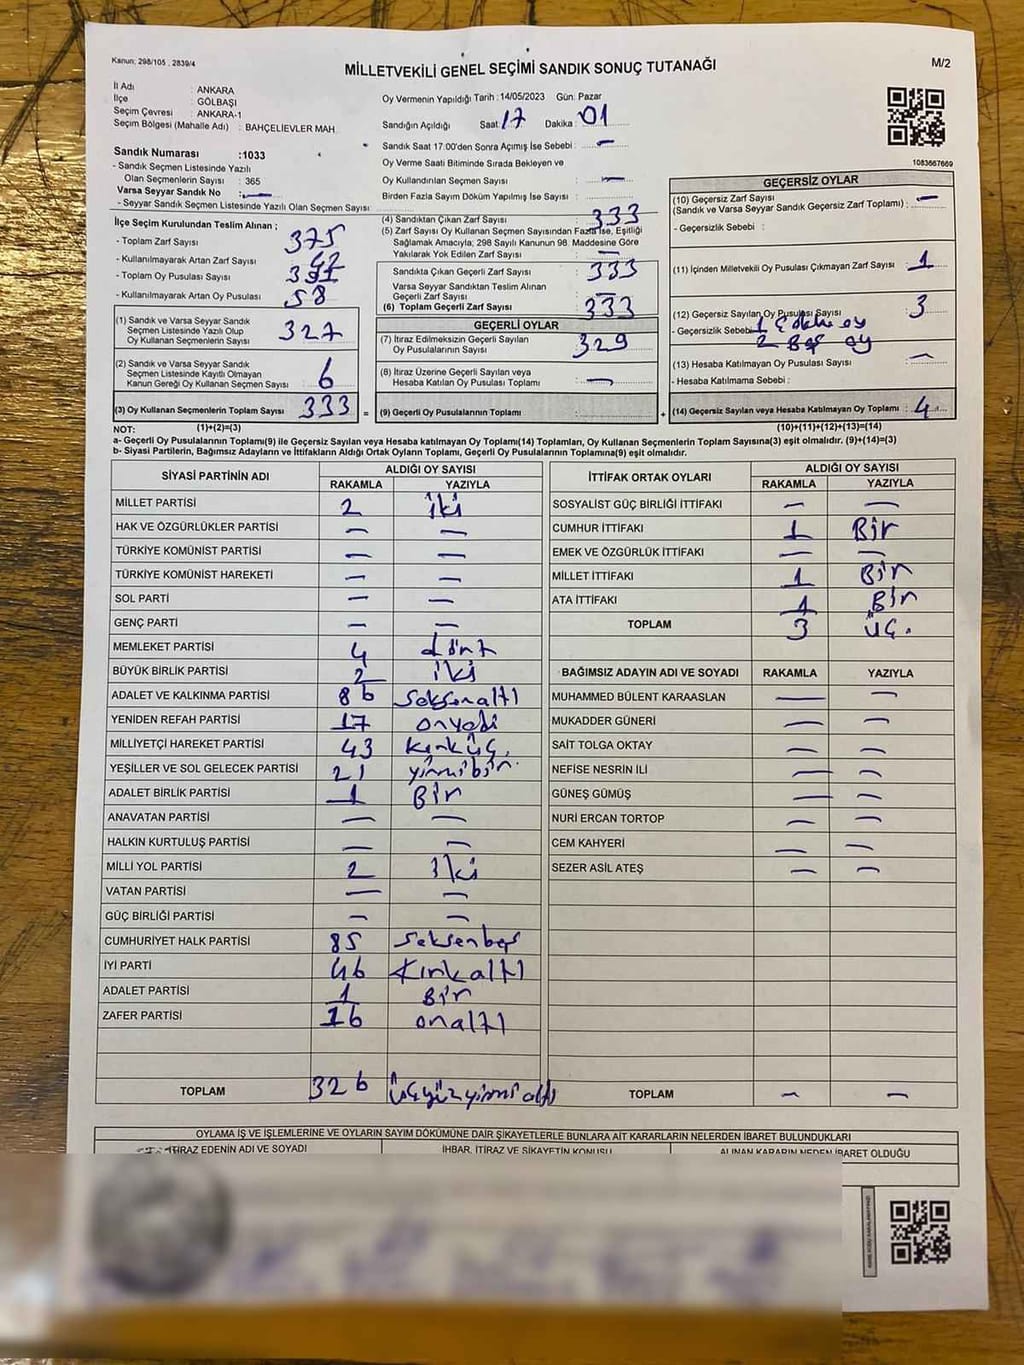 Kanun: 298/105 , 2839/4
MİLLETVEKİLİ GENEL SEÇİMİ SANDIK SONUÇ TUTANAĞI
M/2
İl Adı : ANKARA
İlçe : GÖLBAŞI
Seçim Çevresi : ANKARA-1
Seçim Bölgesi (Mahalle Adı) : BAHÇELİEVLER MAH.
Oy Vermenin Yapıldığı Tarih :14/05/2023 Gün: Pazar
Sandığın Açıldığı Saat 17 Dakika 01
Sandık Saat 17:00'den Sonra Açımış İse Sebebi : —
Oy Verme Saati Bitiminde Sırada Bekleyen ve
Oy Kullandırılan Seçmen Sayısı : —
Birden Fazla Sayım Döküm Yapılmış İse Sayısı :
1083667669
Sandık Numarası :1033
- Sandık Seçmen Listesinde Yazılı
Olan Seçmenlerin Sayısı : 365
Varsa Seyyar Sandık No : —
- Seyyar Sandık Seçmen Listesinde Yazılı Olan Seçmen Sayısı
İlçe Seçim Kurulundan Teslim Alınan ;
- Toplam Zarf Sayısı 375
- Kullanılmayarak Artan Zarf Sayısı 42
- Toplam Oy Pusulası Sayısı
- Kullanılmayarak Artan Oy Pusulası 58
(1) Sandık ve Varsa Seyyar Sandık
Seçmen Listesinde Yazılı Olup
Oy Kullanan Seçmenlerin Sayısı 327
(2) Sandık ve Varsa Seyyar Sandık
Seçmen Listesinde Kayıtlı Olmayan
Kanun Gereği Oy Kullanan Seçmen Sayısı : 6
(3) Oy Kullanan Seçmenlerin Toplam Sayısı : 333 =
(4) Sandıktan Çıkan Zarf Sayısı : 333
(5) Zarf Sayısı Oy Kullanan Seçmen Sayısından Fazla İse, Eşitliği
Sağlamak Amacıyla; 298 Sayılı Kanunun 98. Maddesine Göre
Yakılarak Yok Edilen Zarf Sayısı : —
Sandıkta Çıkan Geçerli Zarf Sayısı : 333
Varsa Seyyar Sandıktan Teslim Alınan
Geçerli Zarf Sayısı : —
(6) Toplam Geçerli Zarf Sayısı : 333
GEÇERLİ OYLAR
(7) İtiraz Edilmeksizin Geçerli Sayılan
Oy Pusulalarının Sayısı : 329
(8) İtiraz Üzerine Geçerli Sayılan veya
Hesaba Katılan Oy Pusulası Toplamı : —
(9) Geçerli Oy Pusulalarının Toplamı : +
GEÇERSİZ OYLAR
(10) Geçersiz Zarf Sayısı
(Sandık ve Varsa Seyyar Sandık Geçersiz Zarf Toplamı) : —
- Geçersizlik Sebebi :
(11) İçinden Milletvekili Oy Pusulası Çıkmayan Zarf Sayısı : 1
(12) Geçersiz Sayılan Oy Pusulası Sayısı : 3
- Geçersizlik Sebebi 1 oy
2 Boş oy
(13) Hesaba Katılmayan Oy Pusulası Sayısı : —
- Hesaba Katılmama Sebebi :
(14) Geçersiz Sayılan veya Hesaba Katılmayan Oy Toplamı : 4
NOT: (1)+(2)=(3) (10)+(11)+(12)+(13)=(14)
a- Geçerli Oy Pusulalarının Toplamı(9) ile Geçersiz Sayılan veya Hesaba katılmayan Oy Toplamı(14) Toplamları, Oy Kullanan Seçmenlerin Toplam Sayısına(3) eşit olmalıdır. (9)+(14)=(3)
b- Siyasi Partilerin, Bağımsız Adayların ve İttifakların Aldığı Ortak Oyların Toplamı, Geçerli Oy Pusulalarının Toplamına(9) eşit olmalıdır.
SİYASİ PARTİNİN ADI ALDIĞI OY SAYISI
RAKAMLA YAZIYLA
MİLLET PARTİSİ 2 iki
HAK VE ÖZGÜRLÜKLER PARTİSİ — —
TÜRKİYE KOMÜNİST PARTİSİ — —
TÜRKİYE KOMÜNİST HAREKETİ — —
SOL PARTİ — —
GENÇ PARTİ — —
MEMLEKET PARTİSİ 4 dört
BÜYÜK BİRLİK PARTİSİ 2 iki
ADALET VE KALKINMA PARTİSİ 86 seksenaltı
YENİDEN REFAH PARTİSİ 17 onyedi
MİLLİYETÇİ HAREKET PARTİSİ 43 kırküç.
YEŞİLLER VE SOL GELECEK PARTİSİ 21 yirmibir.
ADALET BİRLİK PARTİSİ 1 Bir
ANAVATAN PARTİSİ — —
HALKIN KURTULUŞ PARTİSİ — —
MİLLİ YOL PARTİSİ 2 iki
VATAN PARTİSİ — —
GÜÇ BİRLİĞİ PARTİSİ — —
CUMHURİYET HALK PARTİSİ 85 seksenbeş
İYİ PARTİ 46 kırkaltı
ADALET PARTİSİ 1 Bir
ZAFER PARTİSİ 16 onaltı
TOPLAM 326 üçyüzyirmialtı
İTTİFAK ORTAK OYLARI ALDIĞI OY SAYISI
RAKAMLA YAZIYLA
SOSYALİST GÜÇ BİRLİĞİ İTTİFAKI — —
CUMHUR İTTİFAKI 1 Bir
EMEK VE ÖZGÜRLÜK İTTİFAKI — —
MİLLET İTTİFAKI 1 Bir
ATA İTTİFAKI 1 Bir
TOPLAM 3 üç.
BAĞIMSIZ ADAYIN ADI VE SOYADI RAKAMLA YAZIYLA
MUHAMMED BÜLENT KARAASLAN — —
MUKADDER GÜNERİ — —
SAİT TOLGA OKTAY — —
NEFİSE NESRİN İLİ — —
GÜNEŞ GÜMÜŞ — —
NURİ ERCAN TORTOP — —
CEM KAHYERİ — —
SEZER ASİL ATEŞ — —
TOPLAM — —
OYLAMA İŞ VE İŞLEMLERİNE VE OYLARIN SAYIM DÖKÜMÜNE DAİR ŞİKAYETLERLE BUNLARA AİT KARARLARIN NELERDEN İBARET BULUNDUKLARI
İTİRAZ EDENİN ADI VE SOYADI İHBAR, İTİRAZ VE ŞİKAYETİN KONUSU ALINAN KARARIN NEDEN İBARET OLDUĞU